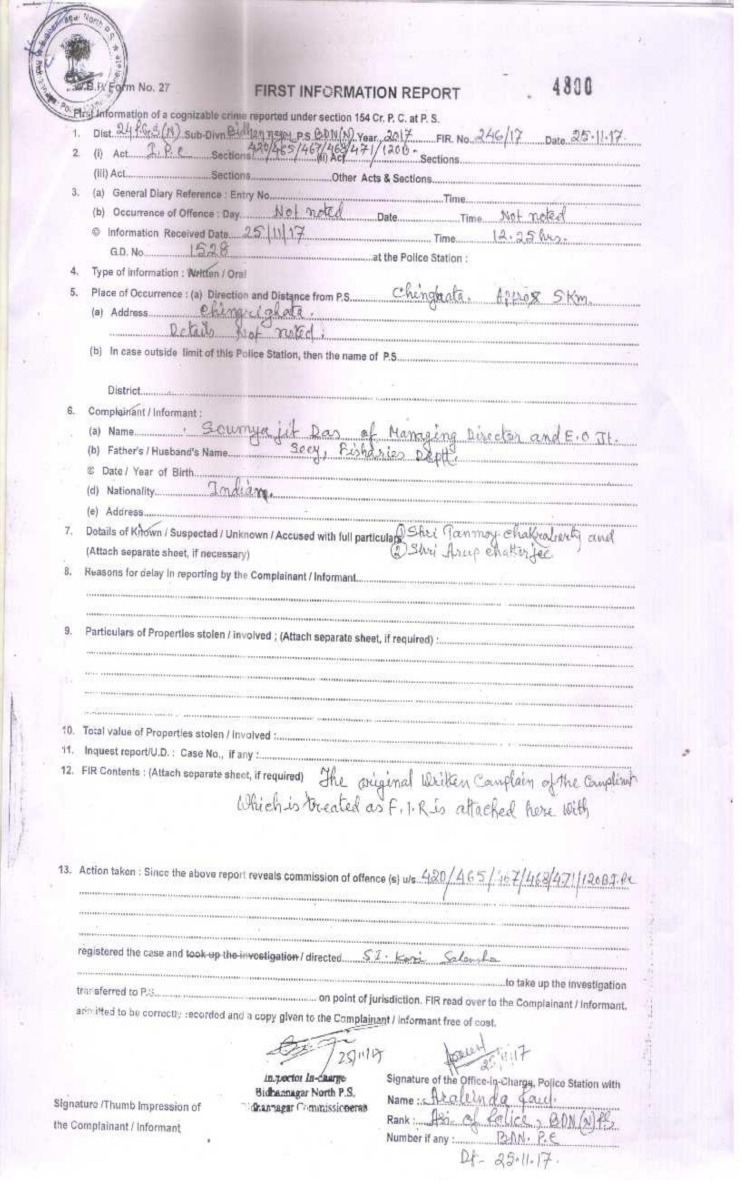 4800
W.B.P. Form No. 27 FIRST INFORMATION REPORT
First Information of a cognizable crime reported under section 154 Cr. P. C. at P. S.
1. Dist. 24 P.G.S (N) Sub-Divn. Bidhannagar P.S BDN(N) Year 2017 FIR. No. 246/17 Date 25.11.17.
2. (i) Act I.P.C Sections 420/465/467/468/471/120B. (ii) Act Sections.
(iii) Act Sections Other Acts & Sections
3. (a) General Diary Reference : Entry No. Time
(b) Occurrence of Offence : Day Not noted Date Time Not noted
© Information Received Date 25/11/17 Time 12.25 hrs.
G.D. No. 1528 at the Police Station :
4. Type of Information : Written / Oral
5. Place of Occurrence : (a) Direction and Distance from P.S. Approx 5 Km.
(a) Address Chingrighata.
Details Not noted.
(b) In case outside limit of this Police Station, then the name of P.S.
District
6. Complainant / Informant :
(a) Name Soumyajit Das of Managing Director and E.O Jt.
(b) Father's / Husband's Name Secy, Fisharies Deptt.
© Date / Year of Birth
(d) Nationality Indian.
(e) Address
7. Details of Known / Suspected / Unknown / Accused with full particulars ① Shri Tanmoy Chakraborty and
(Attach separate sheet, if necessary) ② Shri Arup Chatterjee
8. Reasons for delay in reporting by the Complainant / Informant
9. Particulars of Properties stolen / involved ; (Attach separate sheet, if required) :
10. Total value of Properties stolen / involved :
11. Inquest report/U.D. : Case No., if any :
12. FIR Contents : (Attach separate sheet, if required) The original Written Complain of the Complint
Which is treated as F.I.R is attached here with
13. Action taken : Since the above report reveals commission of offence (s) u/s. 420/465/467/468/471/120B I.P.C
registered the case and took up the investigation / directed S.I.
to take up the investigation
transferred to P.S. on point of jurisdiction. FIR read over to the Complainant / Informant,
admitted to be correctly recorded and a copy given to the Complainant / Informant free of cost.
25/11/17
25.11.17
Inspector In-charge
Bidhannagar North P.S.
Bidhannagar Commissionerate
Signature of the Office-in-Charge, Police Station with
Name :
Rank : of Police, BDN(N) PS
Number if any : BDN. P.C
Dt- 25.11.17.
Signature /Thumb Impression of
the Complainant / Informant